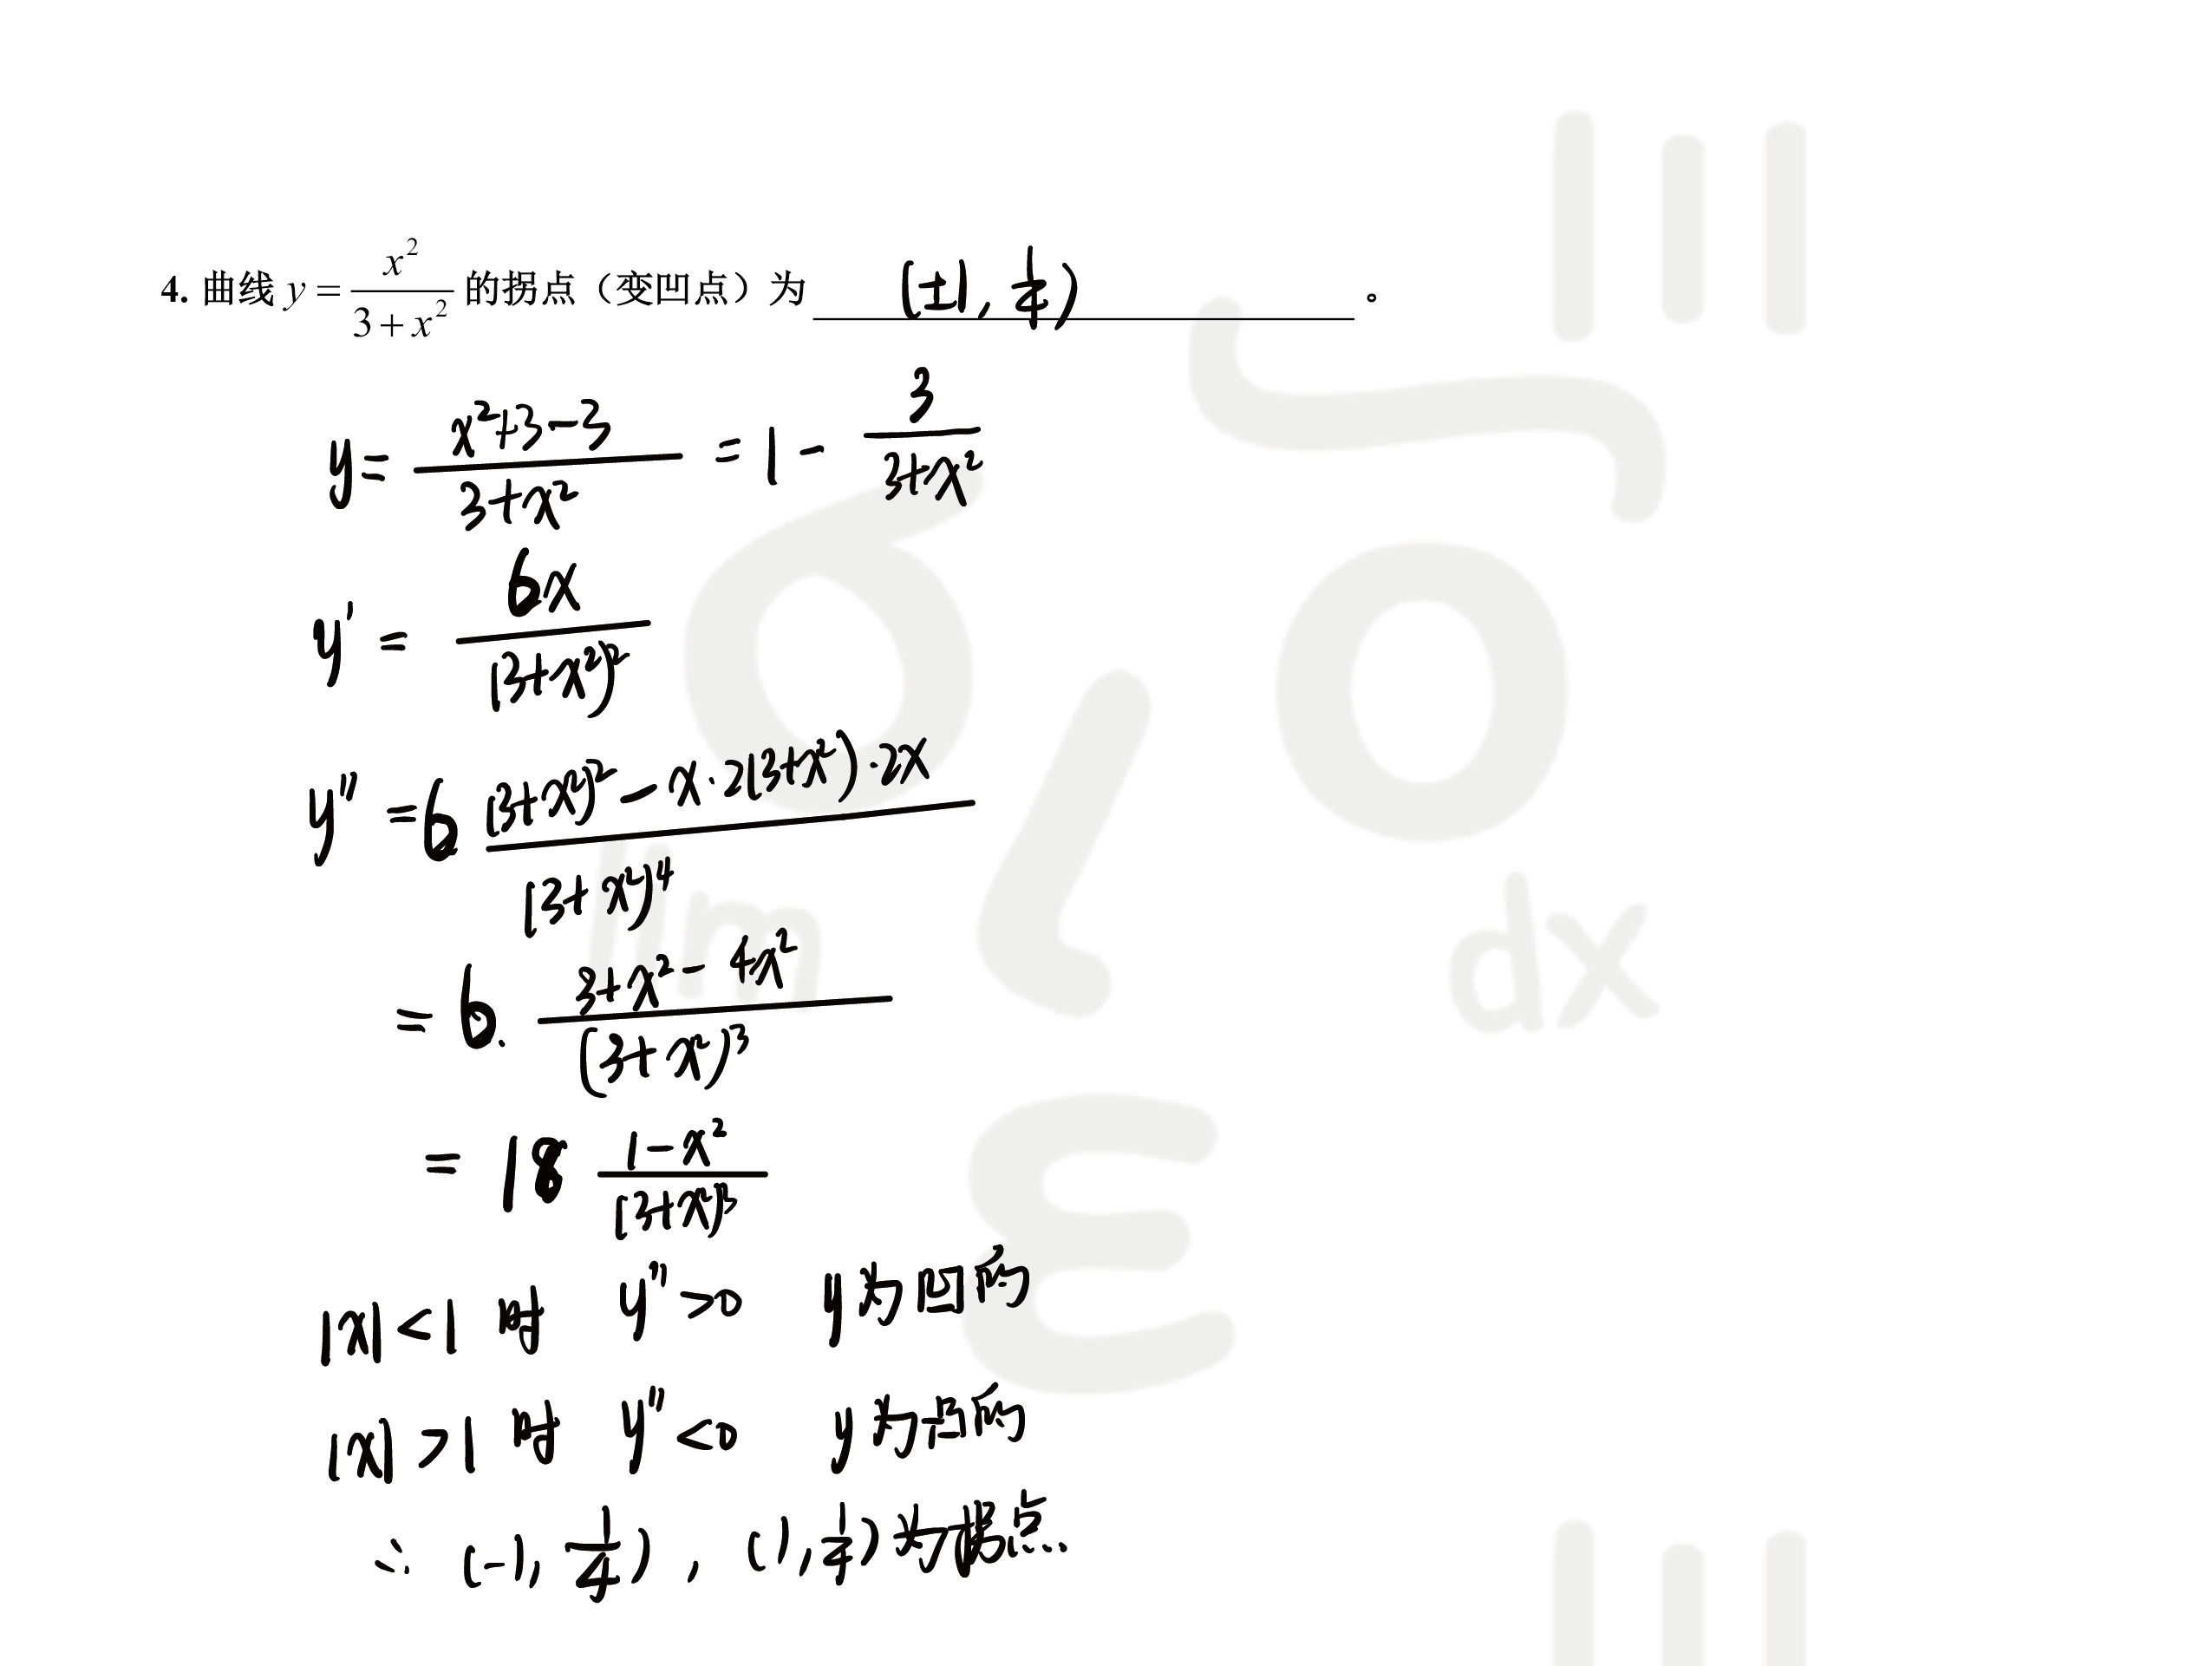 4. 曲线 y = x²/(3+x²) 的拐点（变凹点）为 (±1, 1/4) 。
y = (x²+3-3)/(3+x²) = 1 - 3/(3+x²)
y' = 6x/(3+x²)²
y'' = 6 ((3+x²)² - x·2(3+x²)·2x)/(3+x²)⁴
= 6· (3+x²-4x²)/(3+x²)³
= 18 (1-x²)/(3+x²)³
|x|<1 时 y''>0 y为凹的
|x|>1 时 y''<0 y为凸的
∴ (-1, 1/4), (1, 1/4) 为拐点.
lim
dx